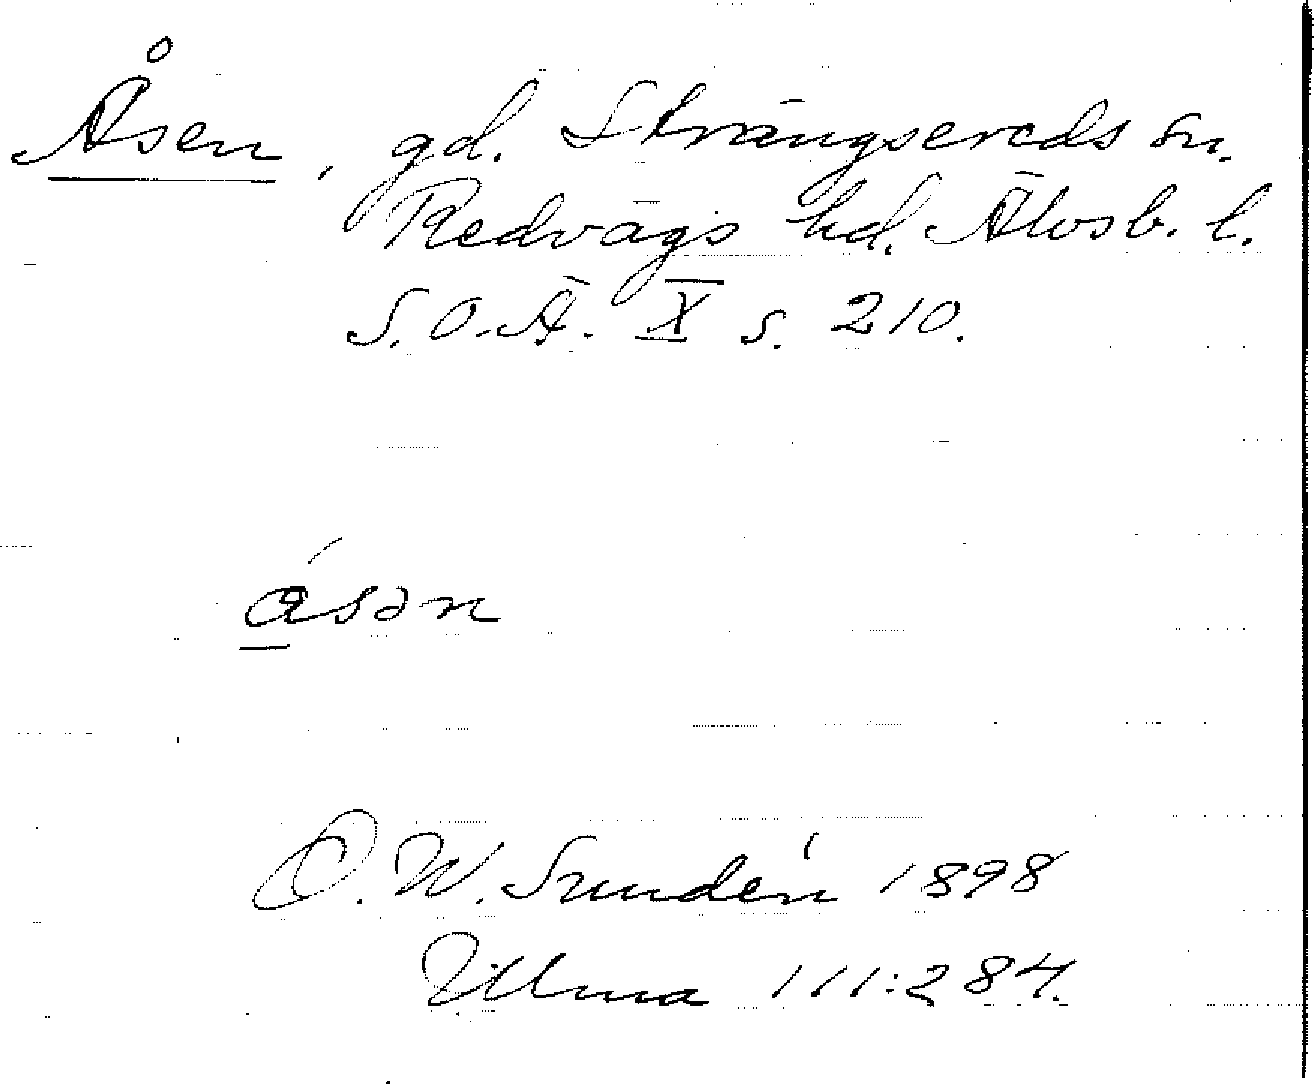 Åsen, gd. Strängsereds sn.
Redvägs hd. Älvsb. l.
S.O.Ä. X s. 210.
ásən
D. W. Sundén 1898
Ulma 111:284.